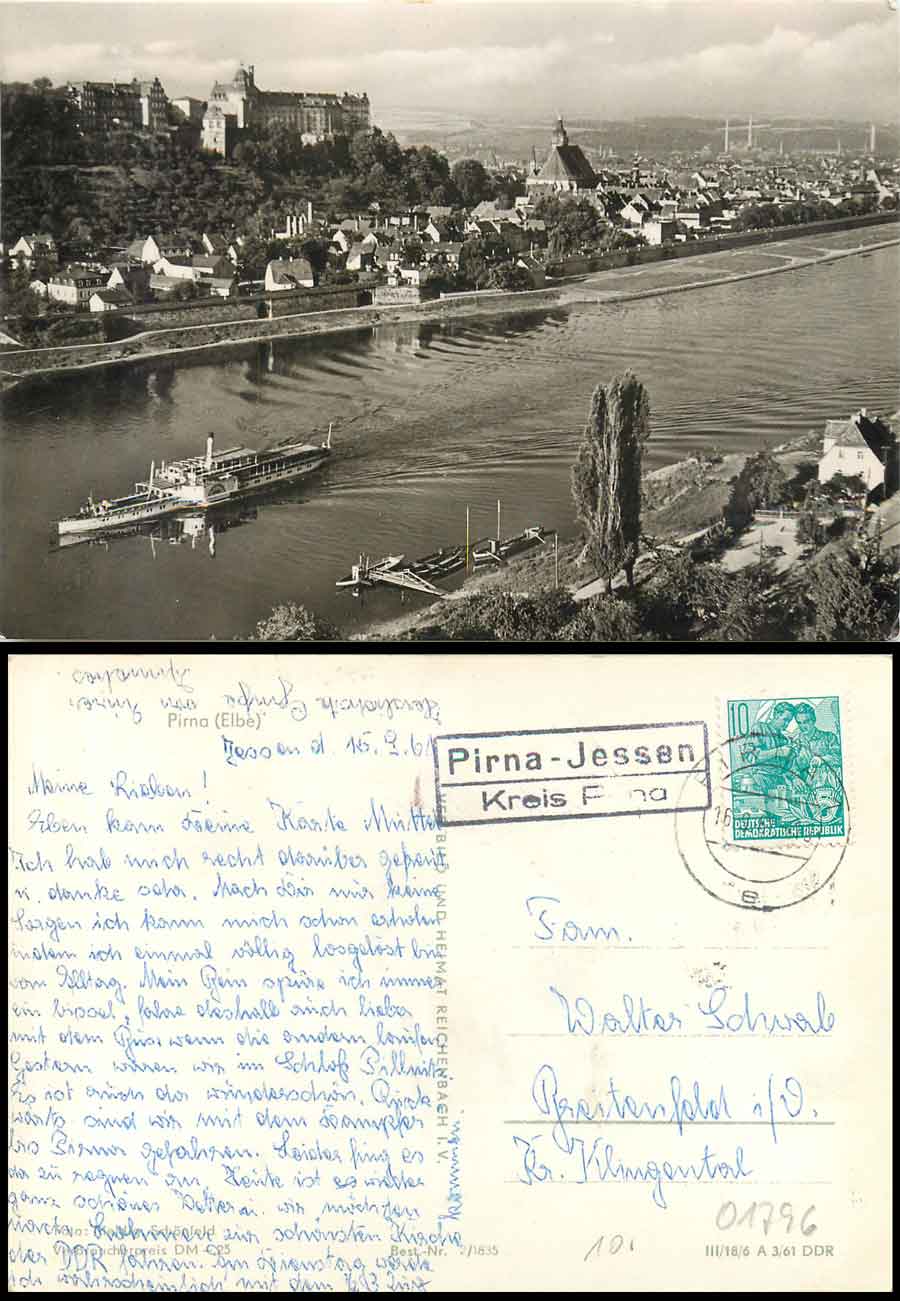 Herzlichste Grüße von Eurer
Pirna (Elbe)
Jessen d. 15. 9. 61
Meine Lieben!
Eben kam Deine Karte Mutter
Ich hab mich recht darüber gefreut
u. danke sehr. Mach Dir nur keine
Sorgen ich kann mich schon erholen
indem ich einmal völlig losgelöst bin
vom Alltag. Mein Bein spüre ich immer
ein bissel, fahre deshalb auch lieber
mit dem Bus wenn die andern laufen
Gestern waren wir im Schloß Pillnitz.
Es ist auch da wunderschön. Rück
wärts sind wir mit dem Dampfer
bis Pirna gefahren. Leider fing es
da zu regnen an. Heute ist es wieder
ganz schönes Wetter u. wir möchten
nach zur schönsten Kirche
der DDR fahren. Am Dienstag werde
ich wahrscheinlich mit dem Zug
Foto: Schönfeld
Verbraucherpreis DM -,25
Best.-Nr. 2/1835
BILD UND HEIMAT REICHENBACH I. V.
Pirna-Jessen
Kreis Pirna
10
DEUTSCHE
DEMOKRATISCHE REPUBLIK
16
e
Fam.
Walter Schwab
Breitenfeld i/V.
Kr. Klingental
01796
10.
III/18/6 A 3/61 DDR